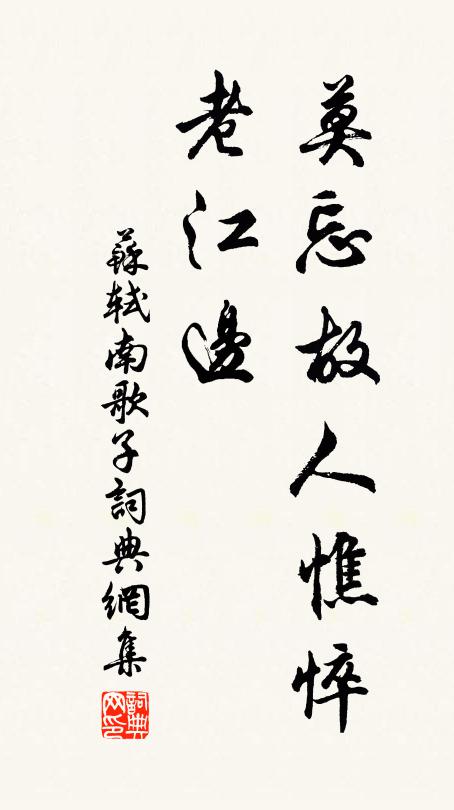 莫忘故人憔悴
老江邊
蘇軾南歌子詞典網集
詞典網印